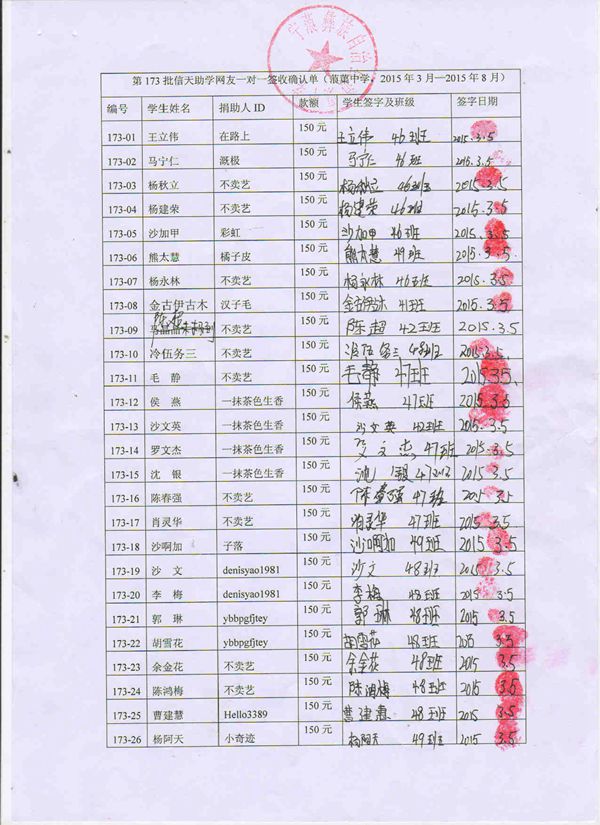 宁蒗彝族自治
第 173 批信天助学网友一对一签收确认单（蒗蕖中学，2015 年 3 月—2015 年 8 月）
编号 学生姓名 捐助人 ID 款额 学生签字及班级 签字日期
173-01 王立伟 在路上 150 元 王立伟 46班 2015.3.5
173-02 马宁仁 溉极 150 元 马宁仁 46班 2015.3.5
173-03 杨秋立 不卖艺 150 元 杨秋立 46班 2015.3.5
173-04 杨建荣 不卖艺 150 元 杨建荣 46班 2015.3.5
173-05 沙加甲 彩虹 150 元 沙加甲 46班 2015.3.5
173-06 熊太慧 橘子皮 150 元 熊太慧 49班 2015.3.5
173-07 杨永林 不卖艺 150 元 杨永林 46班 2015.3.5
173-08 金古伊古木 汉子毛 150 元 金古伊古木 41班 2015.3.5
173-09 不卖艺 150 元 陈超 42班 2015.3.5
173-10 冷伍务三 不卖艺 150 元 冷伍务三 48班 2015.3.5
173-11 毛 静 不卖艺 150 元 毛静 47班 2015.3.5
173-12 侯 燕 一抹茶色生香 150 元 侯燕 47班 2015.3.5
173-13 沙文英 一抹茶色生香 150 元 沙文英 42班 2015.3.5
173-14 罗文杰 一抹茶色生香 150 元 罗文杰 47班 2015.3.5
173-15 沈 银 一抹茶色生香 150 元 沈银 47班 2015.3.5
173-16 陈春强 不卖艺 150 元 陈春强 47班 2015.3.5
173-17 肖灵华 不卖艺 150 元 肖灵华 47班 2015.3.5
173-18 沙啊加 子落 150 元 沙啊加 49班 2015.3.5
173-19 沙 文 denisyao1981 150 元 沙文 48班 2015.3.5
173-20 李 梅 denisyao1981 150 元 李梅 48班 2015.3.5
173-21 郭 琳 ybbpgfjtey 150 元 郭琳 48班 2015 3.5
173-22 胡雪花 ybbpgfjtey 150 元 胡雪花 48班 2015 3.5
173-23 余金花 不卖艺 150 元 余金花 48班 2015 3.5
173-24 陈鸿梅 不卖艺 150 元 陈鸿梅 48班 2015 3.5
173-25 曹建慧 Hello3389 150 元 曹建慧 48班 2015 3.5
173-26 杨阿天 小奇迹 150 元 杨阿天 49班 2015 3.5